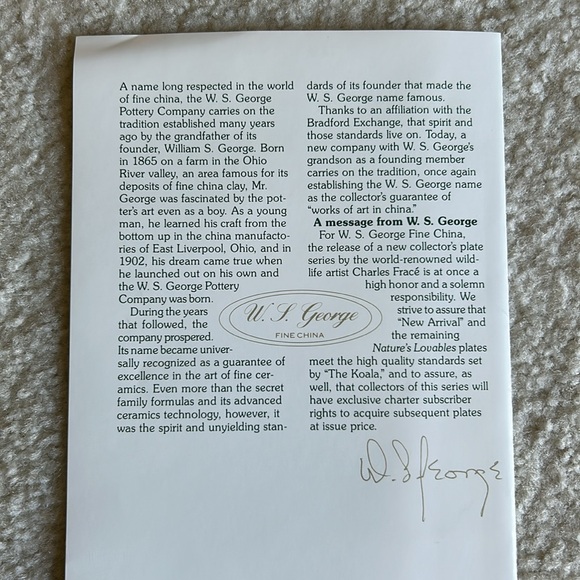 A name long respected in the world
of fine china, the W. S. George
Pottery Company carries on the
tradition established many years
ago by the grandfather of its
founder, William S. George. Born
in 1865 on a farm in the Ohio
River valley, an area famous for its
deposits of fine china clay, Mr.
George was fascinated by the pot-
ter's art even as a boy. As a young
man, he learned his craft from the
bottom up in the china manufacto-
ries of East Liverpool, Ohio, and in
1902, his dream came true when
he launched out on his own and
the W. S. George Pottery
Company was born.
During the years
that followed, the
company prospered.
Its name became univer-
sally recognized as a guarantee of
excellence in the art of fine cer-
amics. Even more than the secret
family formulas and its advanced
ceramics technology, however, it
was the spirit and unyielding stan-
dards of its founder that made the
W. S. George name famous.
Thanks to an affiliation with the
Bradford Exchange, that spirit and
those standards live on. Today, a
new company with W. S. George's
grandson as a founding member
carries on the tradition, once again
establishing the W. S. George name
as the collector's guarantee of
"works of art in china."
A message from W. S. George
For W. S. George Fine China,
the release of a new collector's plate
series by the world-renowned wild-
life artist Charles Fracé is at once a
high honor and a solemn
responsibility. We
strive to assure that
"New Arrival" and
the remaining
Nature's Lovables plates
meet the high quality standards set
by "The Koala," and to assure, as
well, that collectors of this series will
have exclusive charter subscriber
rights to acquire subsequent plates
at issue price.
W. S. George
FINE CHINA
W. S. George